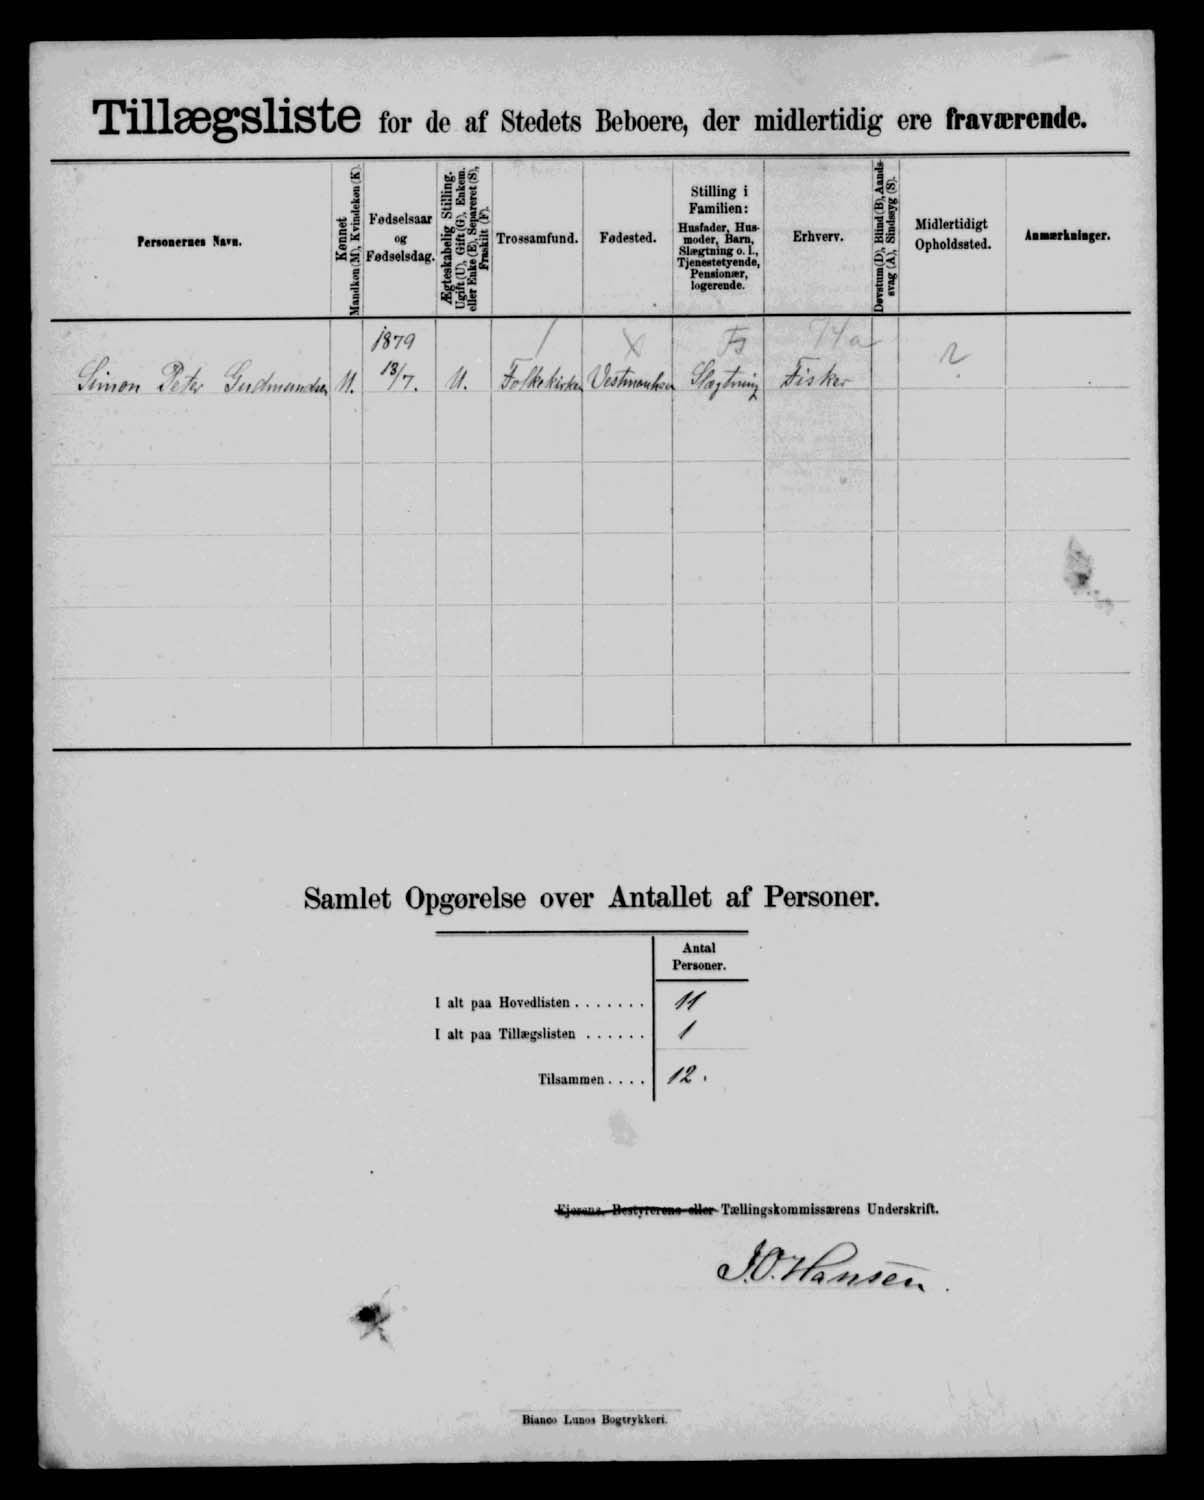 Tillægsliste for de af Stedets Beboere, der midlertidig ere fraværende.
Personernes Navn.
Kønnet
Mandkøn (M), Kvindekøn (K).
Fødselsaar
og
Fødselsdag.
Ægteskabelig Stilling.
Ugift (U), Gift (G), Enkem.
eller Enke (E), Separeret (S),
Fraskilt (F).
Trossamfund.
Fødested.
Stilling i
Familien:
Husfader, Hus-
moder, Barn,
Slægtning o. l.,
Tjenestetyende,
Pensionær,
logerende.
Erhverv.
Døvstum (D), Blind (B), Aands-
svag (A), Sindssyg (S).
Midlertidigt
Opholdssted.
Anmærkninger.
1879
Simon Peter Gudmundsen M. 13/7. U. Folkekirken Slægtning Fisker ?
Samlet Opgørelse over Antallet af Personer.
Antal
Personer.
I alt paa Hovedlisten . . . . . . . 11
I alt paa Tillægslisten . . . . . . 1
Tilsammen . . . . 12.
Ejerens, Bestyrerens eller Tællingskommissærens Underskrift.
J.O. Hansen.
Bianco Lunos Bogtrykkeri.